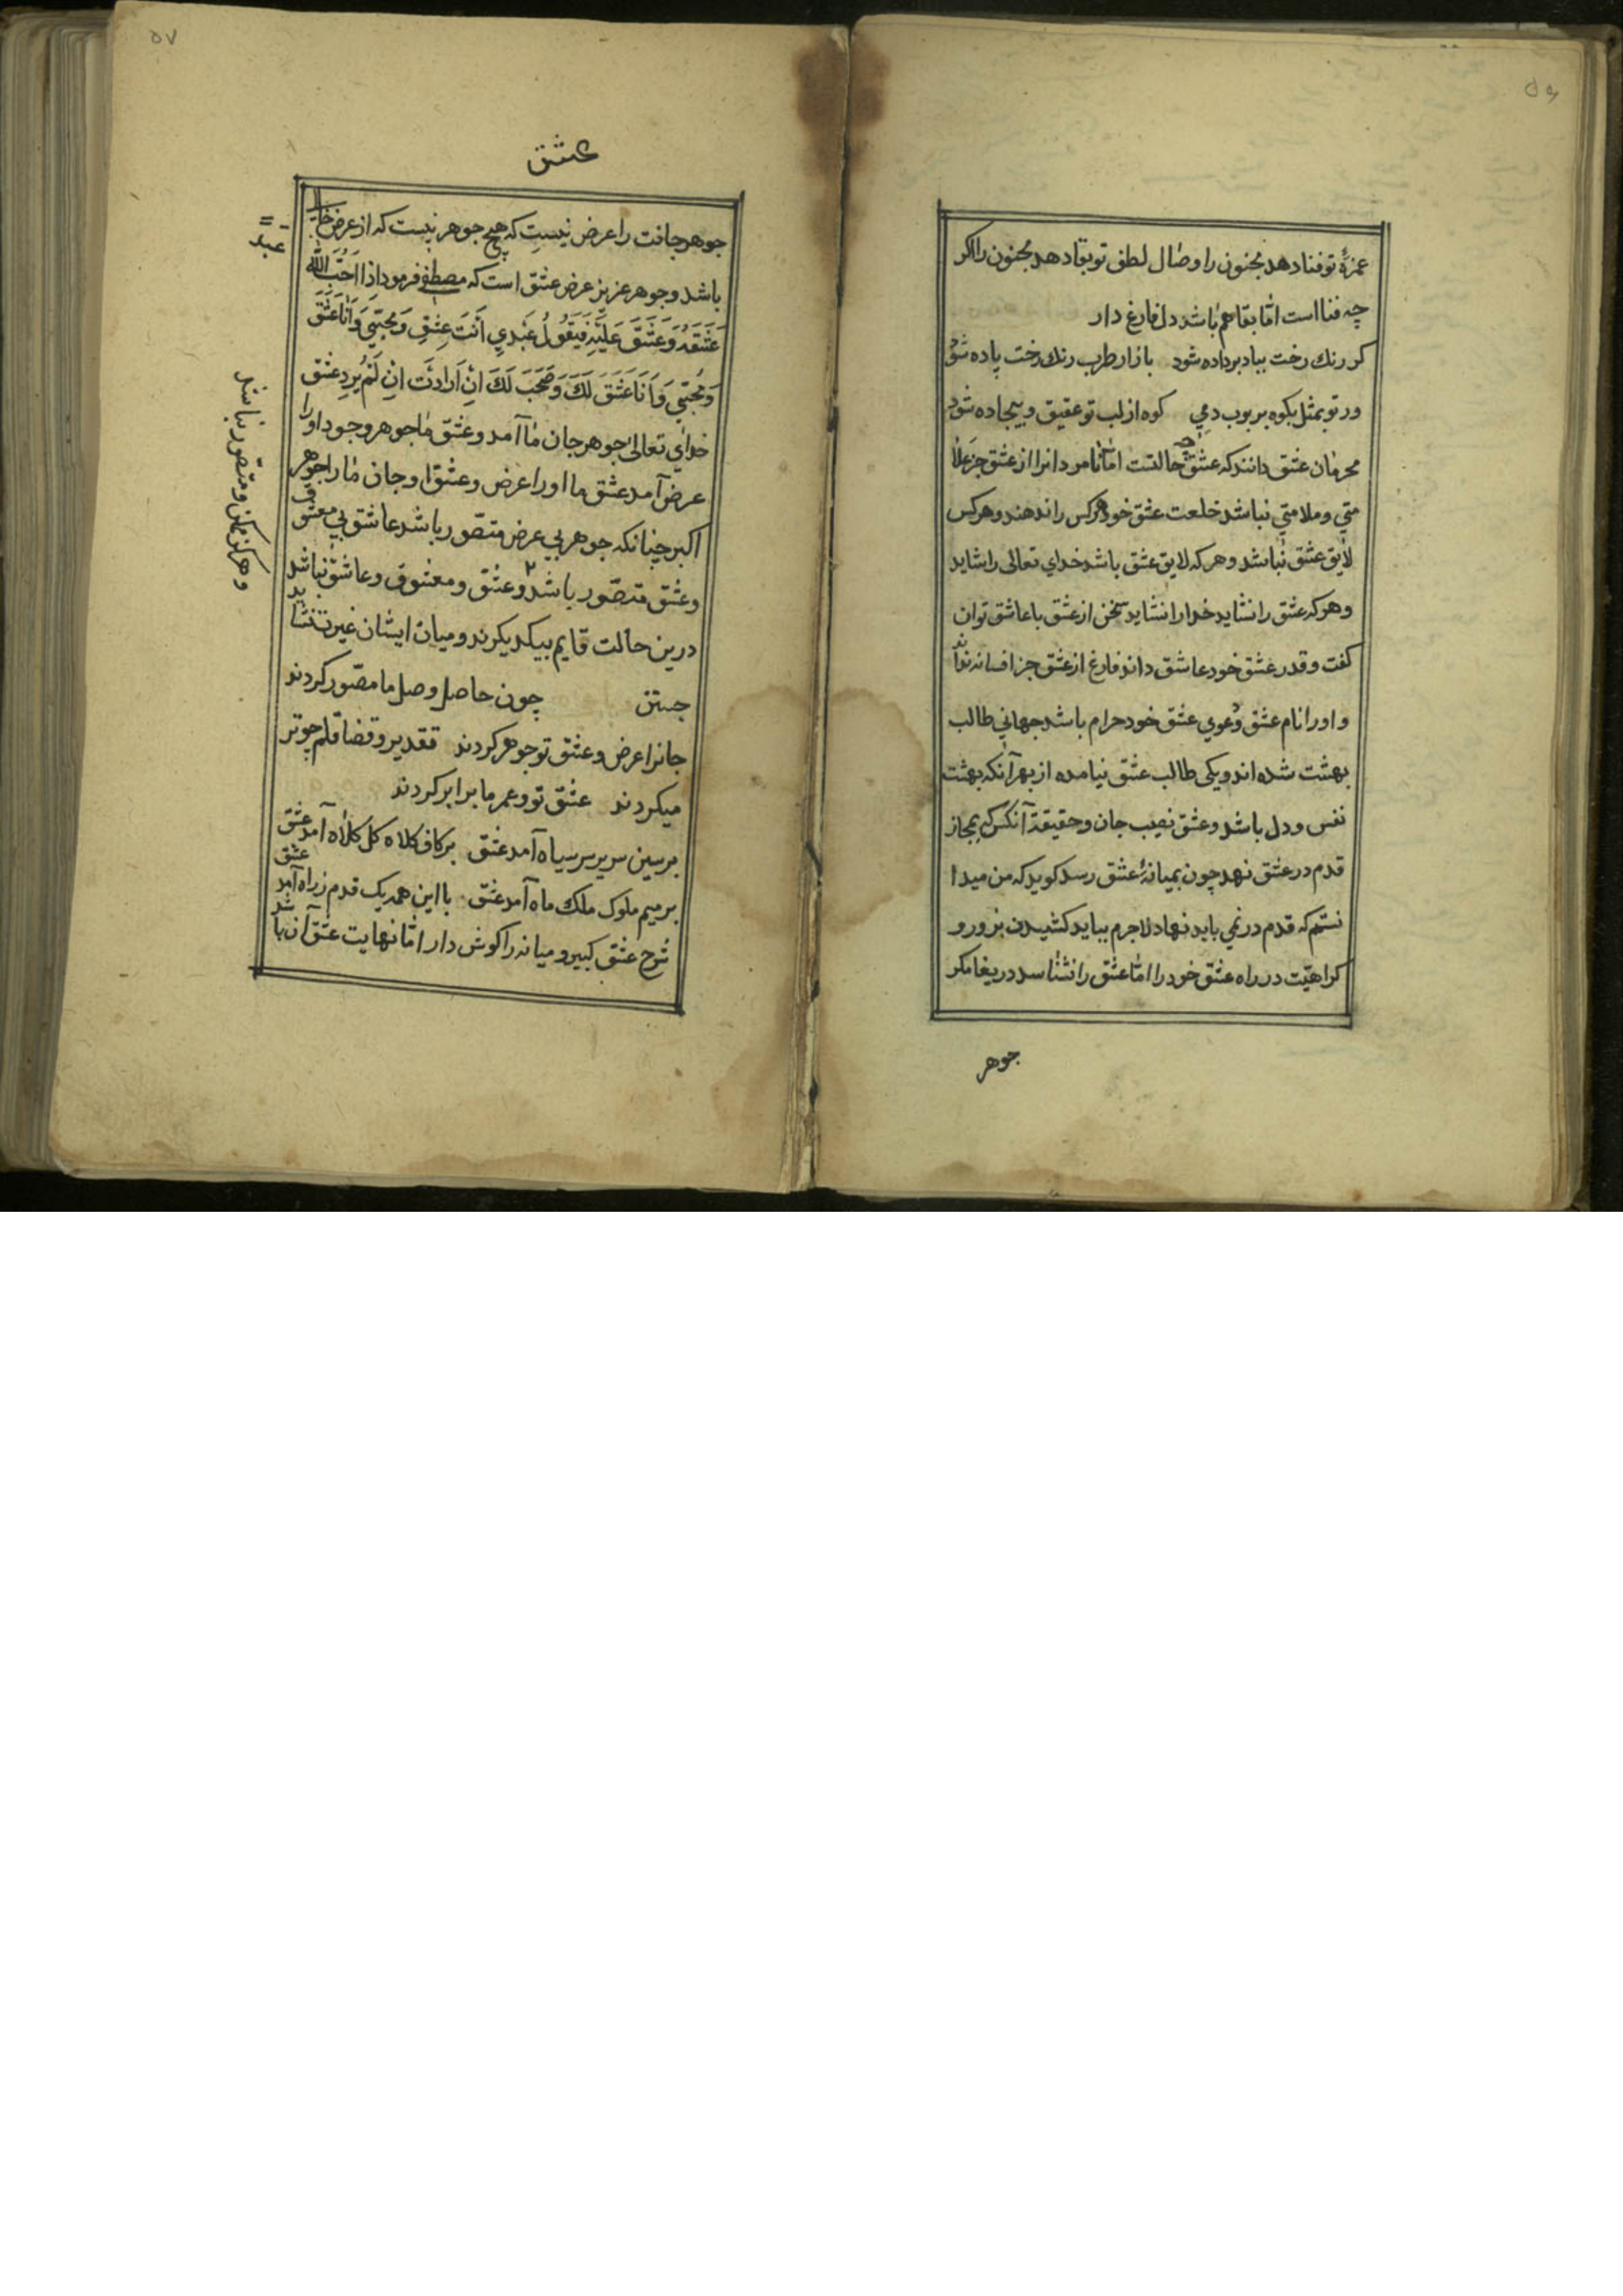 ۵۶
غمزهٔ تو فنا دهد مجنون را وصال لطف تو بقا دهد مجنون را اکر
چه فنا است امّا بقا هم باشد دل فارغ دار
کر رنك رخت بباد برداده شود بازار طرب رنك رخت پاده شود
ور تو بمثل بکوه بر بوب دمی کوه از لب تو عقیق و بیجاده شود
محرمان عشق دانند که عشق چه حالتست امّا نامردانرا از عشق جز علا
متی و ملامتی نباشد خلعت عشق خود هر کس را ندهند و هر کس
لایق عشق نباشد و هر که لایق عشق باشد خدای تعالی را شاید
و هر که عشق را نشاید خدا را نشاید سخن از عشق با عاشق توان
کفت و قدر عشق خود عاشق داند فارغ از عشق جز افسانه نداند
و اورا نام عشق و دعوی عشق خود حرام باشد جهانی طالب
بهشت شده اند و یکی طالب عشق نیامده از بهر آنکه بهشت
نفس و دل باشد و عشق نصیب جان و حقیقة آنکس که بمجاز
قدم در عشق نهد چون بمیانهٔ عشق رسد کوید که من میدا
نستم که قدم در نمی باید نهاد لاجرم بباید کشیدن بزور و
کراهیّت در راه عشق خود را امّا عشق را نشناسد دریغا مکر
جوهر
۵۷
عشق
جوهر جانت را عرض نیست که هیچ جوهر نیست که از عرض خالی
باشد و جوهر عزیز عرض عشق است که مصطفی فرمود اذا اَحَبَّ الله
عَبد
عَشَقَهُ وَ عَشَقَ عَلَیْهِ فَیَقُولُ عَبْدِی اَنْتَ عِشْقِ وَ مُحِبّی وَ اَنَا عَشَقَ
وَ مُحِبّی وَ اَنَا عَشَقَ لَكَ وَ مُحَبَ لَكَ اِنْ اَرَادْتَ اِنْ لَمْ یُرِدِ عشق
خدای تعالی جوهر جان ما آمد و عشق ما جوهر وجود او را
عرض آمد عشق ما او را عرض و عشق او جان ما را جوهر
اکبر چنانکه جوهر بی عرض متصّور باشد عاشق بی معشوق
و عشق متصّور باشد ۲ و عشق و معشوق و عاشق نباشد
و هرکز ممکن و متصّور نباشد
درین حالت قایم بیکدیکرند و میان ایشان غیرت نشاید
جستن چون حاصل وصل ما مصّور کردند
جانرا عرض و عشق تو جوهر کردند تقدیر و قضا قلم چو تر
میکردند عشق تو و عمر ما برابر کردند
بر سین سریر سر سپاه آمد عشق بر کاف کلاه کل کلاه آمد عشق
بر میم ملوک ملك ماه آمد عشق با این همه یک قدم ز راه آمد عشق
شرح عشق کبیر و میانه را کوش دار امّا نهایت عشق آن باشد